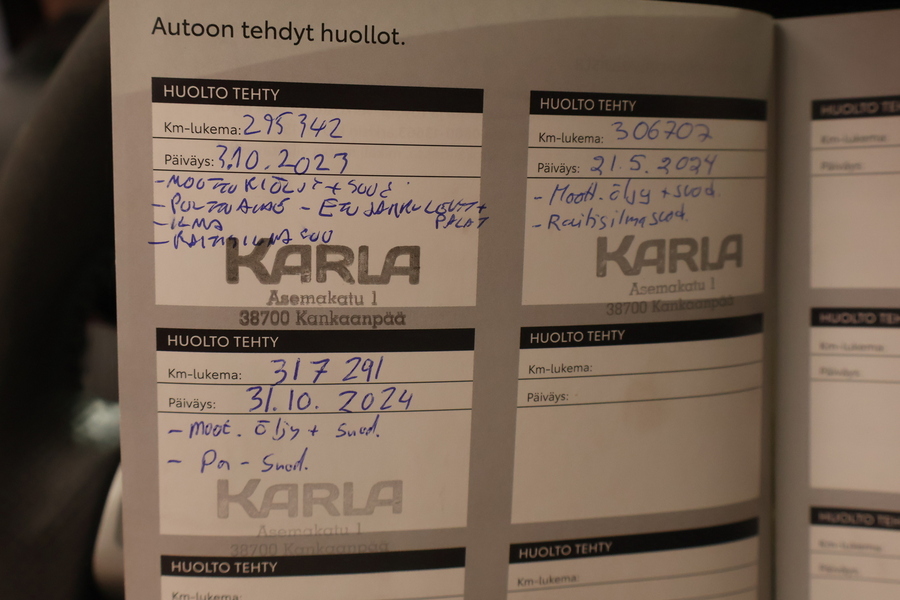 Autoon tehdyt huollot.
HUOLTO TEHTY
Km-lukema: 295 342
Päiväys: 3.10.2023
- MOOTTORIÖLJY + SUOD.
- POLTTOAINE - ETUJARRULEVYT +
PALAT
- ILMA
- RAITISILMA SUO
KARLA
Asemakatu 1
38700 Kankaanpää
HUOLTO TEHTY
Km-lukema: 306707
Päiväys: 21.5.2024
- Moott. öljy + suod.
- Raitisilmasuod.
KARLA
Asemakatu 1
38700 Kankaanpää
HUOLTO TEHTY
Km-lukema: 317 291
Päiväys: 31.10.2024
- Moot. öljy + Suod.
- Pa - Suod.
KARLA
Asemakatu 1
38700 Kankaanpää
HUOLTO TEHTY
Km-lukema:
Päiväys:
HUOLTO TEHTY
Km-lukema:
HUOLTO TEHTY
Km-lukema:
HUOLTO TEHTY
Km-lukema:
Päiväys:
HUOLTO TEHTY
Km-lukema:
Päiväys:
HUOLTO TEHTY
Km-lukema:
Päiväys: